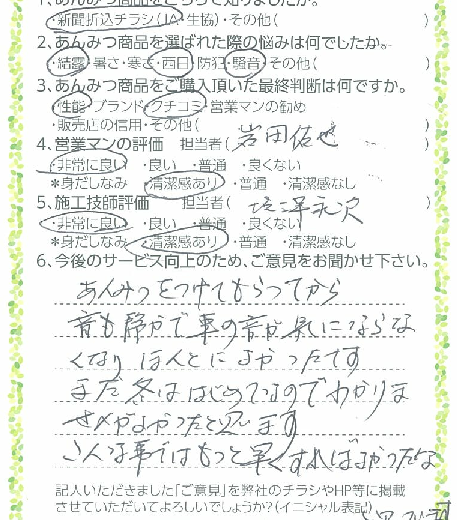 1.あんみつ商品をどちらで知りましたか。
・新聞折込チラシ(JA・生協)・その他( )
2.あんみつ商品を選ばれた際の悩みは何でしたか。
・結露・暑さ・寒さ・西日・防犯・騒音・その他( )
3.あんみつ商品をご購入頂いた最終判断は何ですか。
・性能・ブランド・クチコミ・営業マンの勧め
・販売店の信用・その他( )
4.営業マンの評価 担当者( 岩田佑也 )
・非常に良い ・良い ・普通 ・良くない
*身だしなみ ・清潔感あり ・普通 ・清潔感なし
5.施工技師評価 担当者( )
・非常に良い ・良い ・普通 ・良くない
*身だしなみ ・清潔感あり ・普通 ・清潔感なし
6.今後のサービス向上のため、ご意見をお聞かせ下さい。
あんみつをつけてもらってから
音も静かで車の音が気にならな
くなり ほんとによかったです
まだ冬は はじめてなのでわかりま
せんがよかったと思います
こんな事ではもっと早くすればよかったな
記入いただきました「ご意見」を弊社のチラシやHP等に掲載
させていただいてよろしいでしょうか?(イニシャル表記)